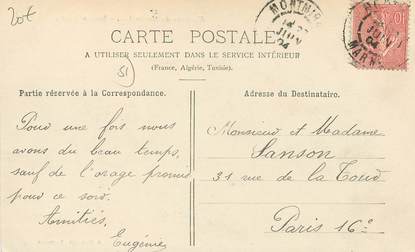 20€
MONTMIR
JUIN
04
MARNE
10
CARTE POSTALE
A UTILISER SEULEMENT DANS LE SERVICE INTÉRIEUR
(France, Algérie, Tunisie).
51
Partie réservée à la Correspondance.
Adresse du Destinataire.
Pour une fois nous
avons du beau temps,
sauf de l'orage promis
pour ce soir.
Amitiés,
Eugénie
Monsieur et Madame
Sanson
31 rue de la Tour
Paris 16e